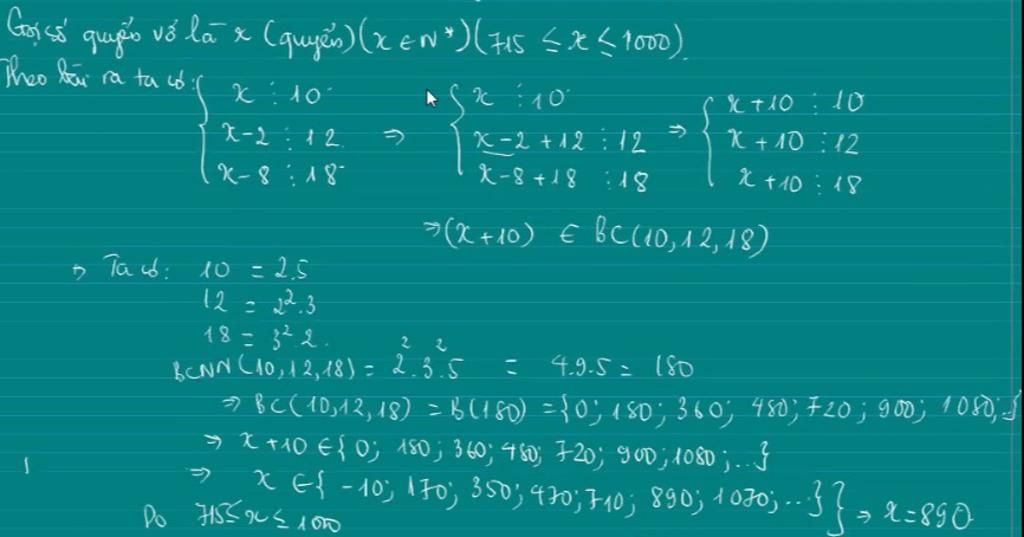 Gọi số quyển vở là x (quyển) (x ∈ N*) (715 ≤ x ≤ 1000).
Theo bài ra ta có: { x ⋮ 10 ; x-2 ⋮ 12 ; x-8 ⋮ 18 ⇒ { x ⋮ 10 ; x-2+12 ⋮ 12 ; x-8+18 ⋮ 18 ⇒ { x+10 ⋮ 10 ; x+10 ⋮ 12 ; x+10 ⋮ 18
⇒ (x+10) ∈ BC(10,12,18)
⇒ Ta có: 10 = 2.5
12 = 2².3
18 = 3².2.
BCNN(10,12,18) = 2².3².5 = 4.9.5 = 180
⇒ BC(10,12,18) = B(180) = {0; 180; 360; 480; 720; 900; 1080;..}
⇒ x+10 ∈ {0; 180; 360; 480; 720; 900; 1080; ...}
⇒ x ∈ {-10; 170; 350; 470; 710; 890; 1070; ...}
Do 715 ≤ x ≤ 1000 } ⇒ x = 890